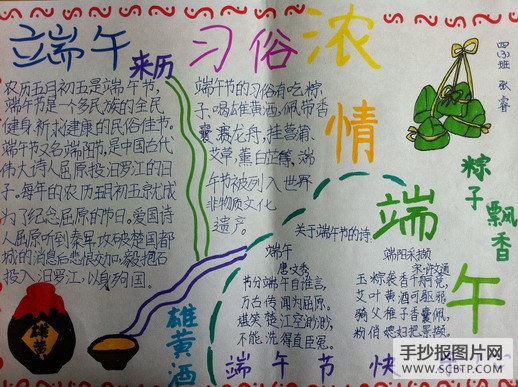 端午
来历
习俗
浓
情
端
午
四(3)班 张睿
粽子
飘香
农历五月初五是端午节,
端午节是一个多民族的全民
健身、祈求健康的民俗佳节。
端午节又名端阳节,是中国古代
伟大诗人屈原投汨罗江的日
子。每年的农历五月初五就成
为了纪念屈原的节日。爱国诗
人屈原听到秦军攻破楚国都
城的消息
投入汨罗江,以身殉国。
端午节的习俗有吃粽
子、喝雄黄酒、佩带香
囊、赛龙舟、挂菖蒲、
艾草,薰白芷等,端
午节被列入世界
非物质文化
遗产。
关于端午节的诗:
端午
唐·文秀
节分端午自谁言,
万古传闻为屈原。
堪笑楚江空渺渺,
不能洗得直臣冤。
端阳采撷
玉粽袭香千舸竞,
艾叶黄酒可驱邪。
骑父稚子香囊佩,
粉俏媳妇把景撷。
雄黄
雄黄酒
端午节快
手抄报图片网
WWW.SCBTP.COM